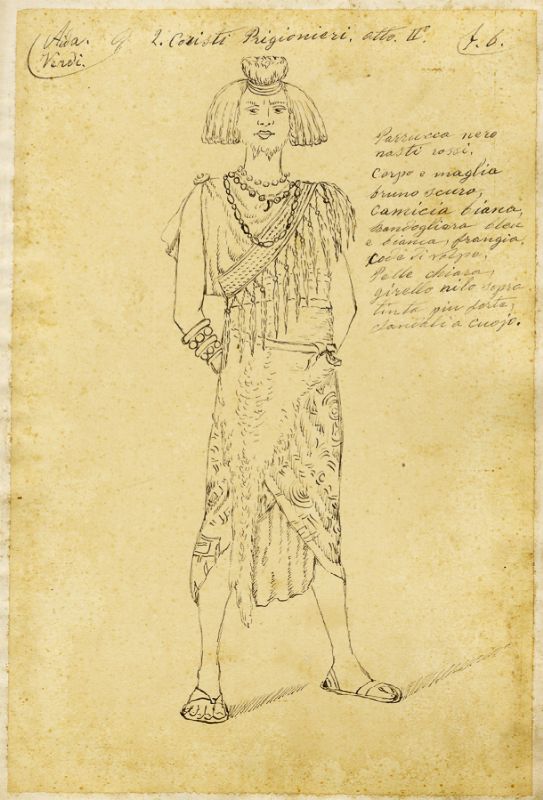 Aida.
Verdi.
2. Coristi Prigionieri. atto. II°
f. 6.
Parrucca nera
nastri rossi.
Corpo e maglia
bruno scuro,
camicia bianca,
bandogliera bleu
e bianca, frangia,
Code di volpe.
Pelle chiara,
girello nilo sopra
tinta più forte,
sandali a cuojo.